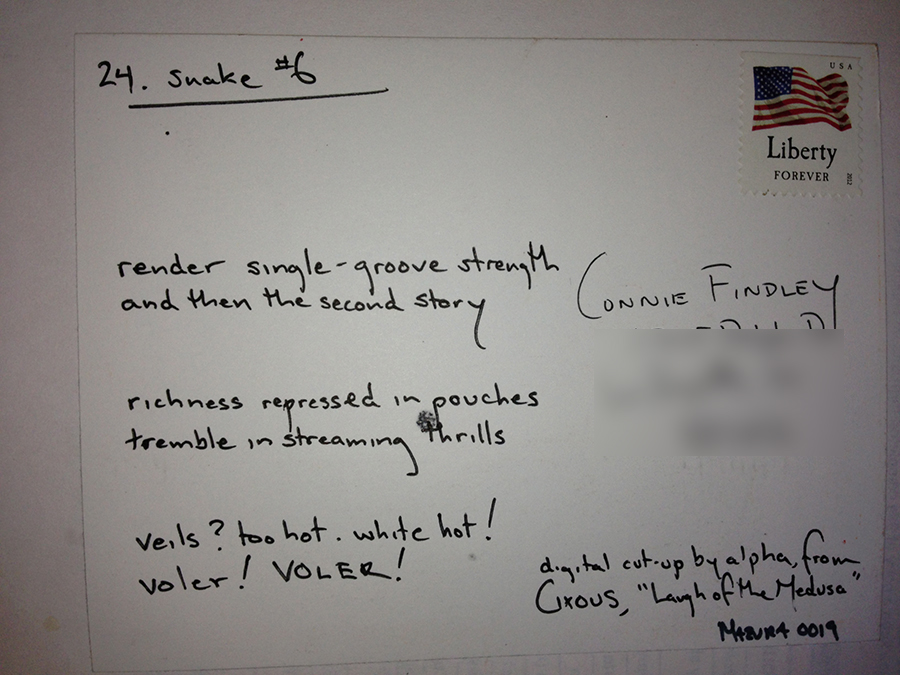 24. snake #6
USA
Liberty
FOREVER
2012
render single-groove strength
and then the second story
richness repressed in pouches
tremble in streaming thrills
veils? too hot. white hot!
voler! VOLER!
CONNIE FINDLEY
digital cut-up by alpha, from
CIXOUS, "Laugh of the Medusa"
0019